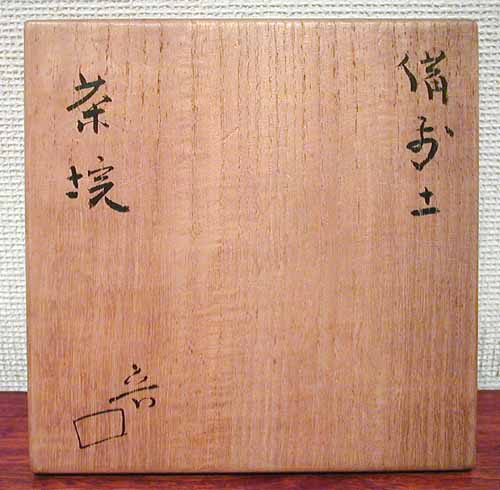 備前土
茶垸